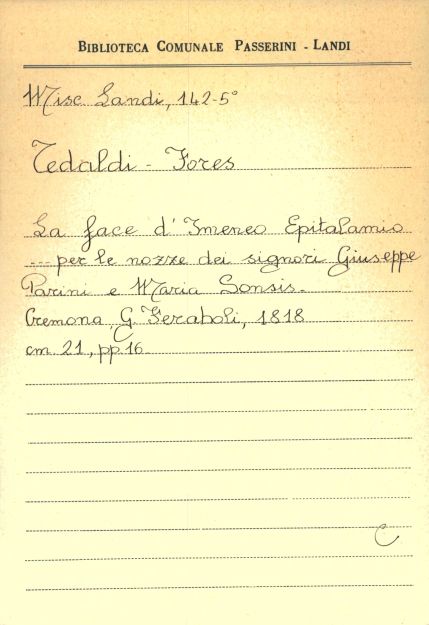 BIBLIOTECA COMUNALE PASSERINI - LANDI
Misc. Landi, 142-5°
Tedaldi - Fores
La face d'Imeneo Epitalamio
--- per le nozze dei signori Giuseppe
Parini e Maria Sonsis.
Cremona, G. Feraboli, 1818
cm 21, pp. 16
C